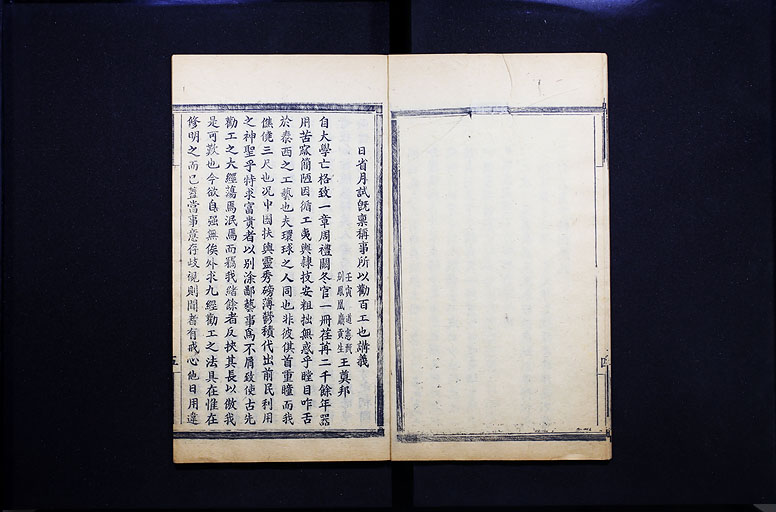 日省月試既稟稱事所以勸百工也講義
壬寅 道憲到
剡鳳凰廳廩生王奠邦
自大學亡格致一章周禮闕冬官一冊荏苒二千餘年器
用苦窳簡陋因循工夷輿隸技安粗拙無惑乎瞠目咋舌
於泰西之工藝也夫環球之人同也非彼俱首重瞳而我
僬僥三尺也況中國扶輿靈秀磅薄鬱積代出前民利用
之神聖乎特求富貴者以別涂鄙藝事為不屑致使古先
勸工之大經蕩焉泯焉而竊我緒餘者反挾其長以傲我
是可歎也今欲自强無俟外求九經勸工之法具在惟在
修明之而已蓋當事意存歧視則聞者有戒心他日用違
五